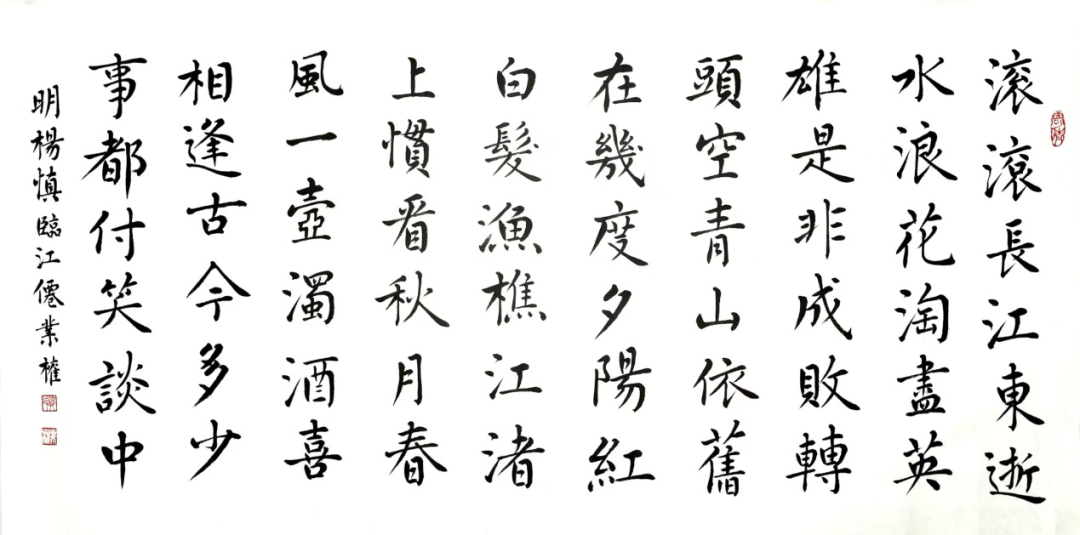 滚滚長江東逝
水浪花淘盡英
雄是非成敗轉
頭空青山依舊
在幾度夕陽紅
白髮漁樵江渚
上慣看秋月春
風一壺濁酒喜
相逢古今多少
事都付笑談中
明楊慎臨江僊業權